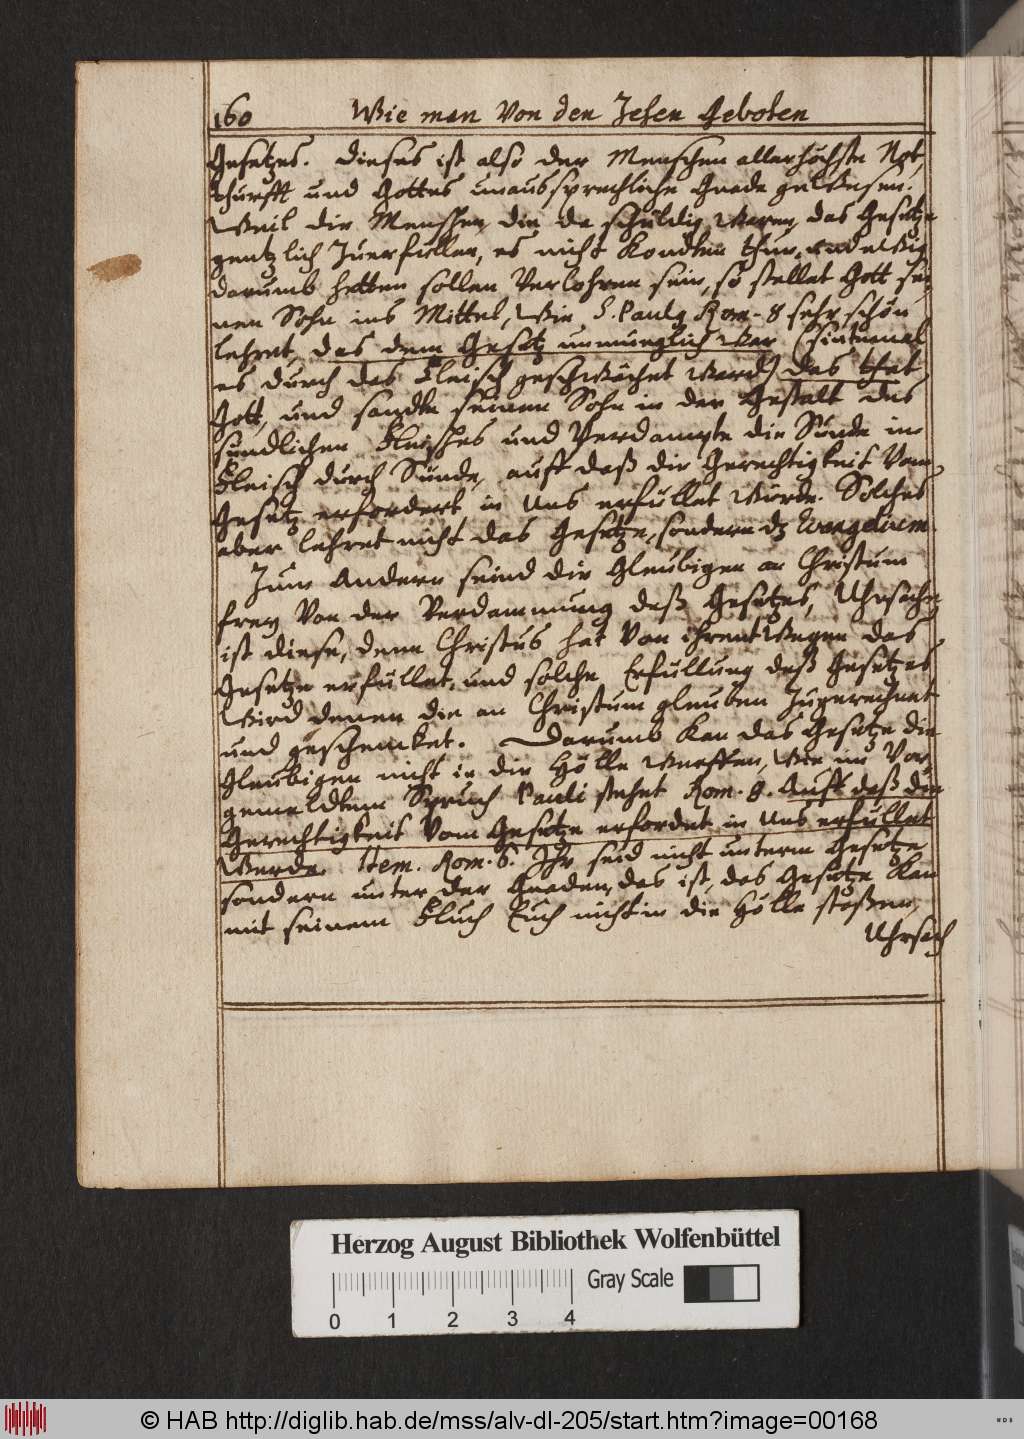 160 Wie man Von den Zehen Geboten
Gesetzes. Dieses ist also der Menschen allerhöchste Not,
thurfft und Gottes unaussprechliche Gnade gewesen.
Weil die Menschen, die da schuldig waren, das Gesetze
gentzlich Zuerfüllen, es nicht Kondten thun, und ewig
darumb hetten sollen Verlohren sein, so stellet Gott sei,
nen Sohn ins Mittel, Wie S. Paulg Rom. 8 sehr schön
lehret, das dem Gesetz unmüeglich War (sintemal
es durch das Fleisch geschwächet Ward) das thet
Gott, und sandte seinen Sohn in der Gestalt des
sündlichen Fleisches und Verdampte die Sünde im
Fleisch durch Sünde, auff daß die Gerechtigkeit Vom
Gesetz erfordert in Uns erfüllet Würde. Solches
aber lehret nicht das Gesetze, sondern dz Evangelium.
Zum Andern seind die Gleubigen an Christum
frey Von der Verdammung deß Gesetzes, Uhrsache
ist diese, denn Christus hat Von ihrent Wegen das
Gesetze erfüllet, und solche Erfüllung deß Gesetzes
Wird denen die an Christum gleuben Zugerechnet
und geschencket. Darumb Kan das Gesetze die
Gleubigen nicht in die Hölle Werffen, Wie im Vor,
gemeldtem Spruch Pauli stehet Rom. 8. Auff daß die
Gerechtigkeit Vom Gesetze erfordet in Uns erfüllet
Werde. Item. Rom. 6. Ihr seid nicht unterm Gesetze
sondern unter der Gnaden, das ist, das Gesetze Kan
mit seinem Fluch Euch nicht in die Hölle stoßen,
Uhrsach
Herzog August Bibliothek Wolfenbüttel
Gray Scale
0 1 2 3 4
© HAB http://diglib.hab.de/mss/alv-dl-205/start.htm?image=00168